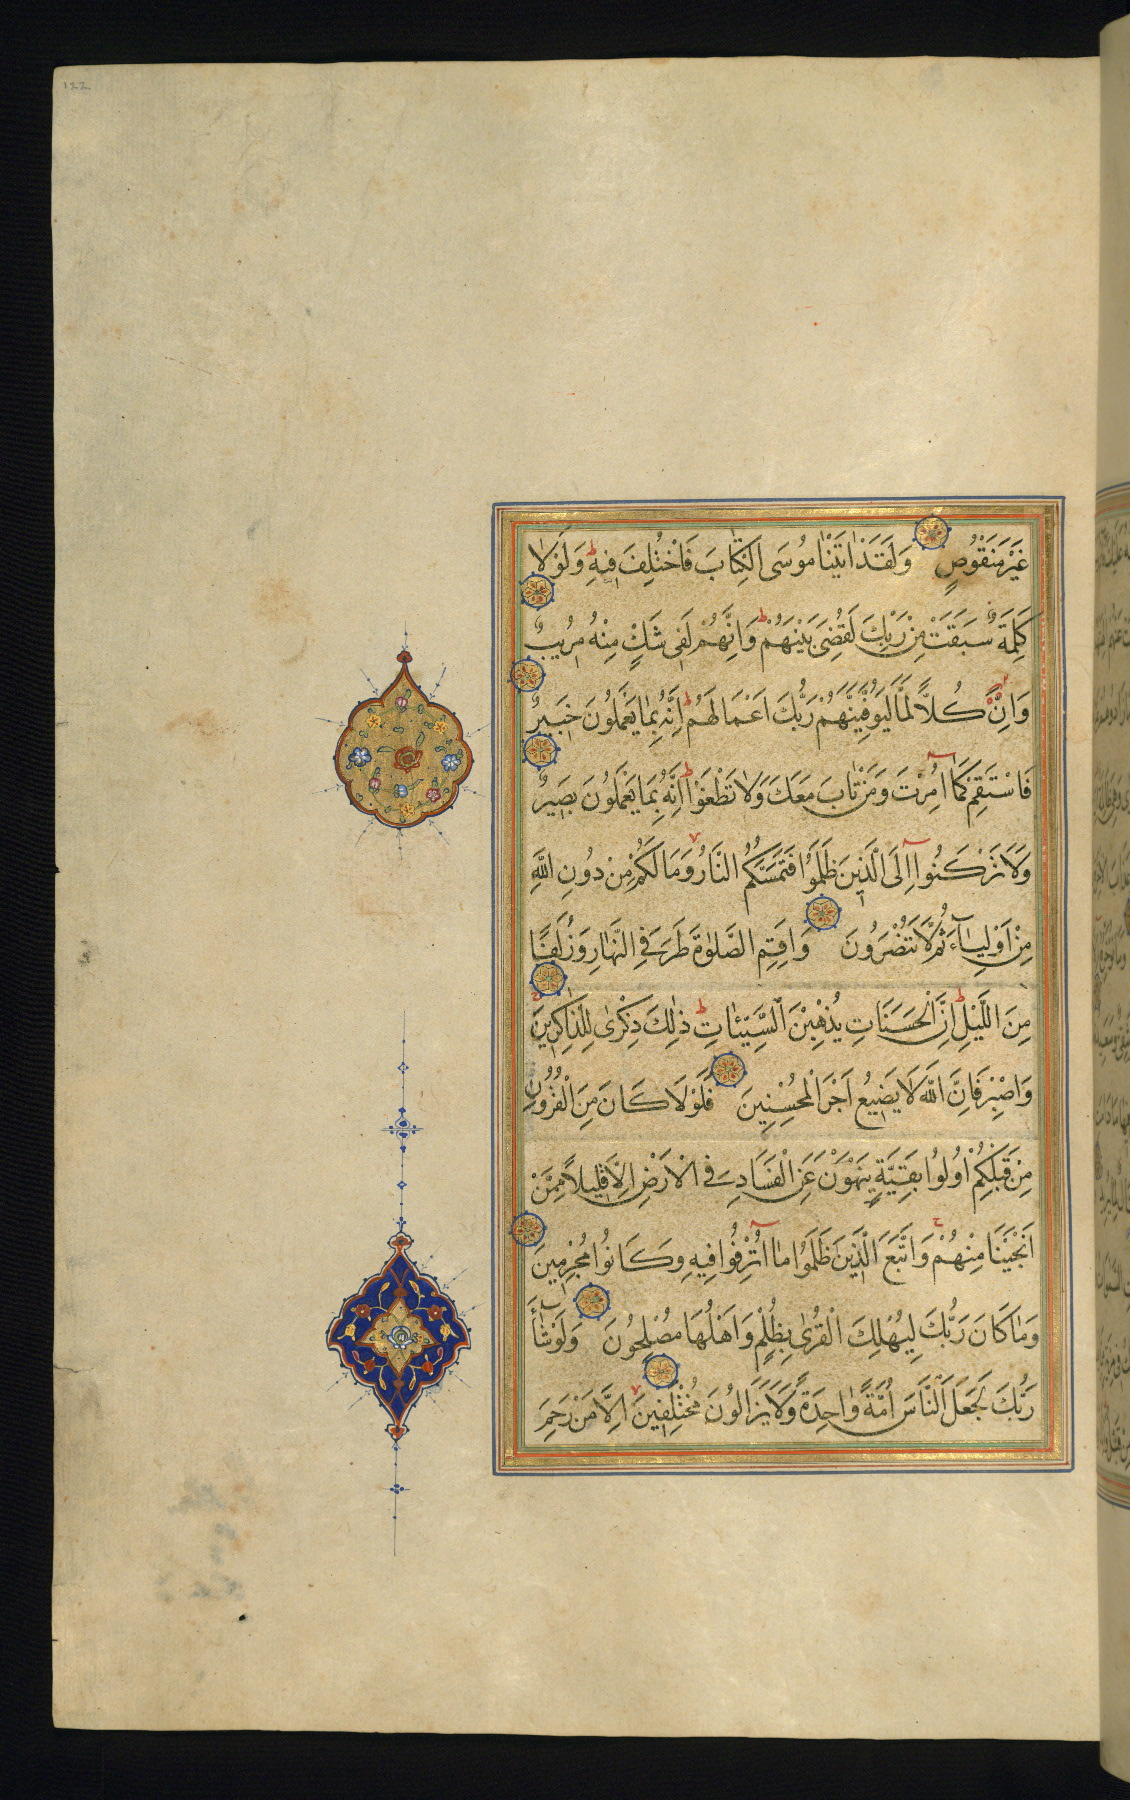 ١٢٢
غَيْرَ مَنْقُوصٍ وَلَقَدْ اٰتَيْنَا مُوسَى الْكِتَابَ فَاخْتُلِفَ فِيهِ وَلَوْلَا
كَلِمَةٌ سَبَقَتْ مِنْ رَبِّكَ لَقُضِىَ بَيْنَهُمْ وَاِنَّهُمْ لَفِى شَكٍّ مِنْهُ مُرِيبٌ
وَاِنَّ كُلًّا لَمَّا لَيُوَفِّيَنَّهُمْ رَبُّكَ اَعْمَالَهُمْ اِنَّهُ بِمَا يَعْمَلُونَ خَبِيرٌ
فَاسْتَقِمْ كَمَا اُمِرْتَ وَمَنْ تَابَ مَعَكَ وَلَا تَطْغَوْا اِنَّهُ بِمَا يَعْمَلُونَ بَصِيرٌ
وَلَا تَرْكَنُوا اِلَى الَّذِينَ ظَلَمُوا فَتَمَسَّكُمُ النَّارُ وَمَا لَكُمْ مِنْ دُونِ اللّٰهِ
مِنْ اَوْلِيَآءَ ثُمَّ لَا تُنْصَرُونَ وَاَقِمِ الصَّلٰوةَ طَرَفَىِ النَّهَارِ وَزُلَفًا
مِنَ اللَّيْلِ اِنَّ الْحَسَنَاتِ يُذْهِبْنَ السَّيِّئَاتِ ذٰلِكَ ذِكْرٰى لِلذَّاكِرِينَ
وَاصْبِرْ فَاِنَّ اللّٰهَ لَا يُضِيعُ اَجْرَ الْمُحْسِنِينَ فَلَوْلَا كَانَ مِنَ الْقُرُونِ
مِنْ قَبْلِكُمْ اُولُوا بَقِيَّةٍ يَنْهَوْنَ عَنِ الْفَسَادِ فِى الْاَرْضِ اِلَّا قَلِيلًا مِمَّنْ
اَنْجَيْنَا مِنْهُمْ وَاتَّبَعَ الَّذِينَ ظَلَمُوا مَا اُتْرِفُوا فِيهِ وَكَانُوا مُجْرِمِينَ
وَمَا كَانَ رَبُّكَ لِيُهْلِكَ الْقُرٰى بِظُلْمٍ وَاَهْلُهَا مُصْلِحُونَ وَلَوْ شَآءَ
رَبُّكَ لَجَعَلَ النَّاسَ اُمَّةً وَاحِدَةً وَلَا يَزَالُونَ مُخْتَلِفِينَ اِلَّا مَنْ رَحِمَ